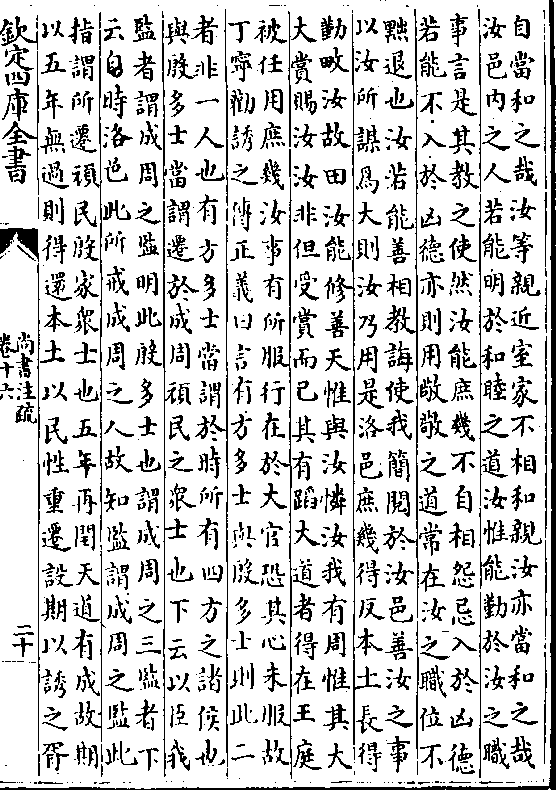 自當和之哉汝等親近室家不相和親汝亦當和之哉
汝邑内之人若能明於和睦之道汝惟能勤於汝之職
事言是其教之使然汝能庶幾不自相怨忌入於凶德
若能不入於凶德亦則用敬敬之道常在汝之職位不
黜退也汝若能善相教誨使我簡閱於汝邑善汝之事
以汝所謀爲大則汝乃用是洛邑庶幾得反本土長得
勤畋汝故田汝能修善天惟與汝憐汝我有周惟其大
大賞賜汝汝非但受賞而已其有蹈大道者得在王庭
被任用庶幾汝事有所服行在於大官恐其心未服故
丁寧勸誘之傳正義曰言有方多士與殷多士則此二
者非一人也有方多士當謂於時所有四方之諸侯也
與殷多士當謂遷於成周頑民之衆士也下云以臣我
監者謂成周之監明此殷多士也謂成周之三監者下
云自時洛邑此所戒成周之人故知監謂成周之監此
指謂所遷頑民殷家衆士也五年再閏天道有成故期
以五年無過則得還本土以民性重遷設期以誘之胥
欽定四庫全書
尚書注疏
卷十六
二十